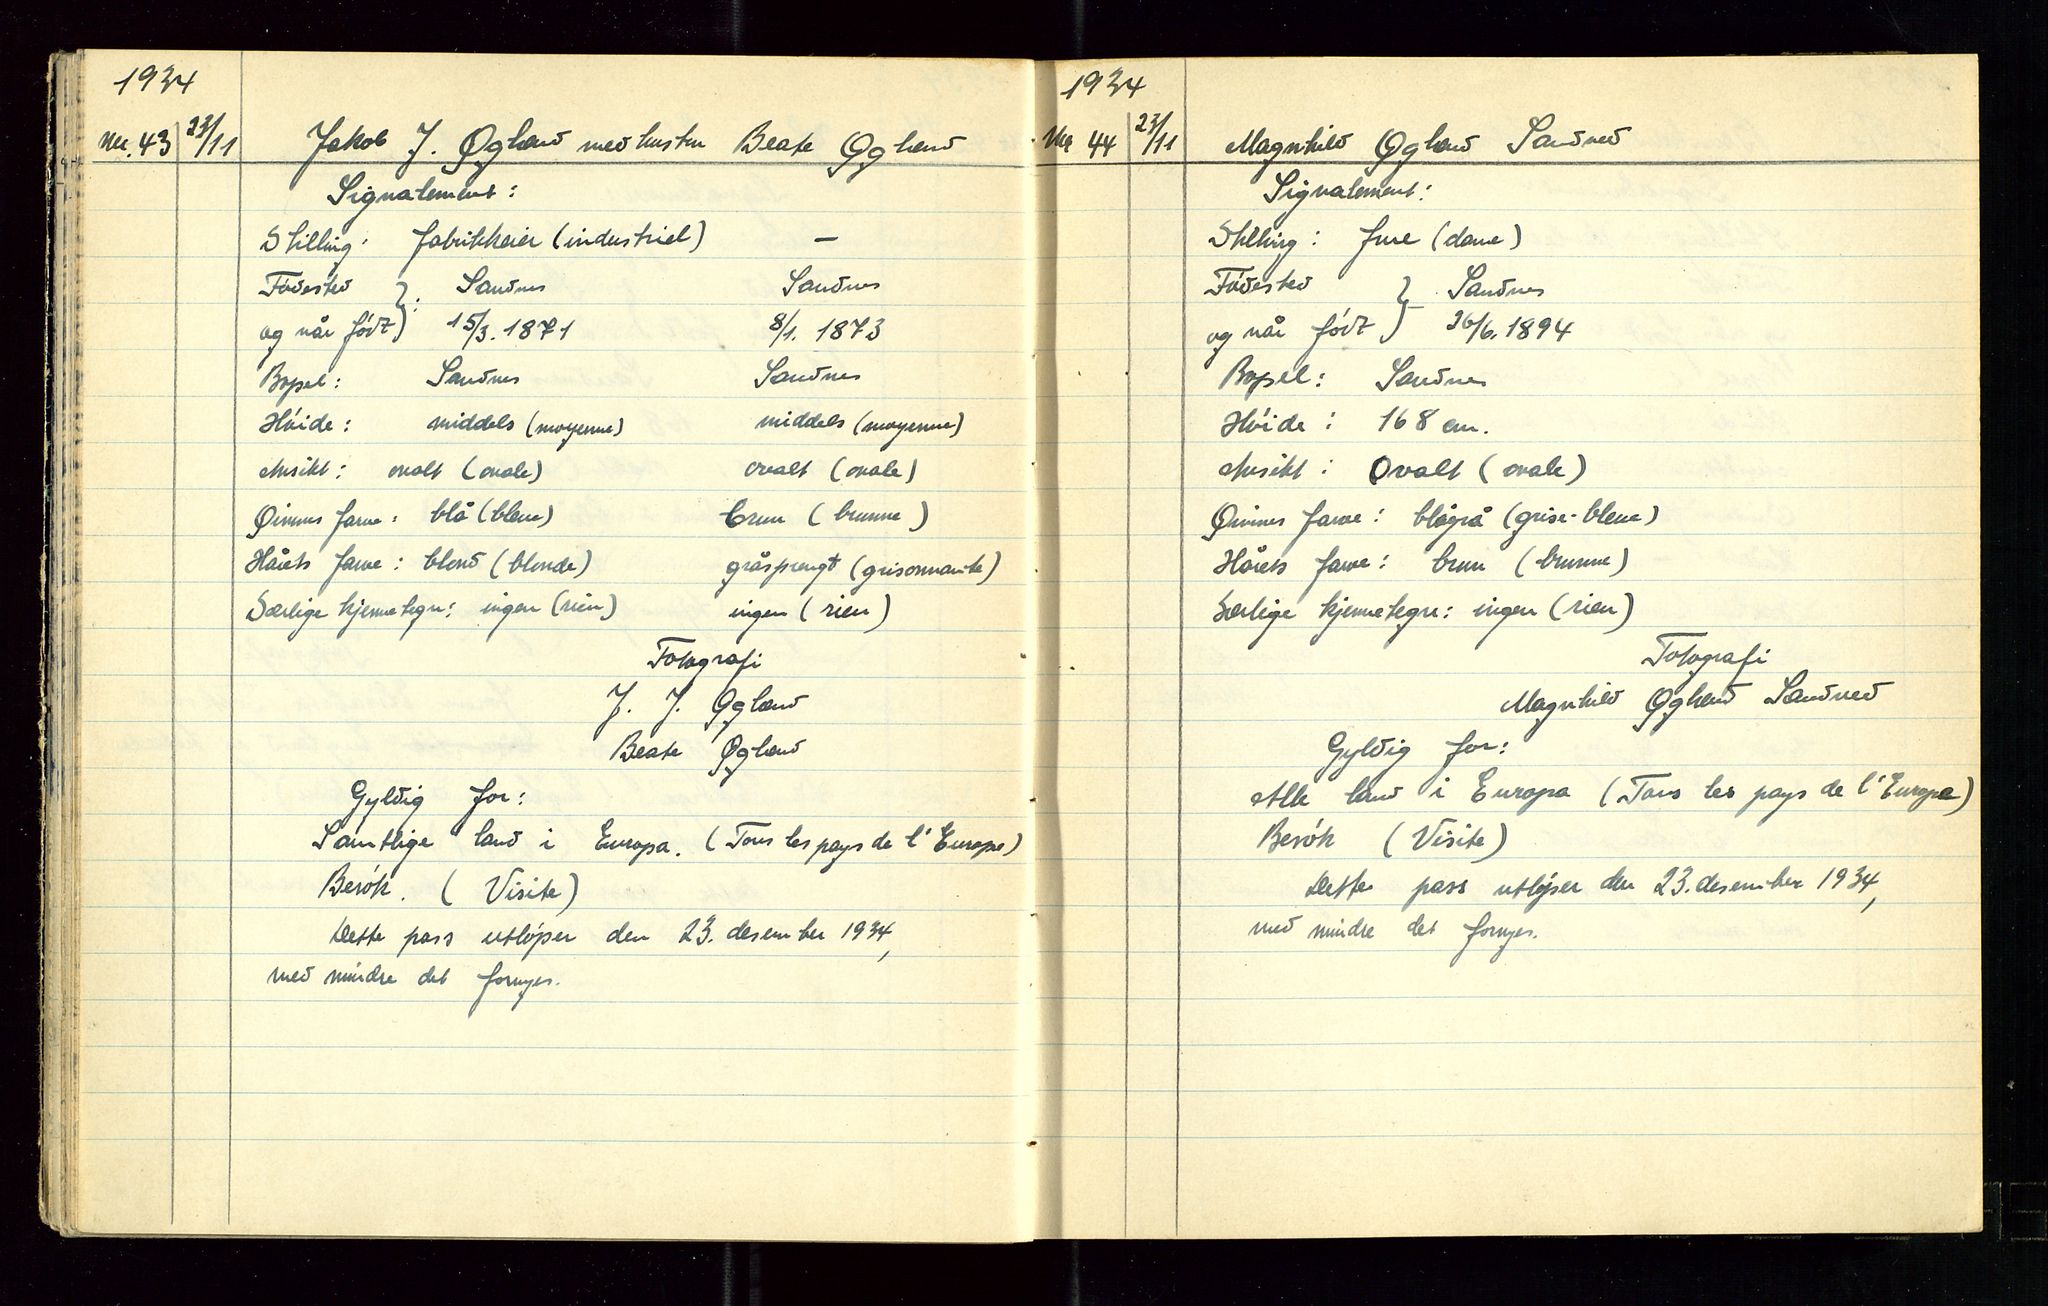 1934
Nr. 43 23/11 Jakob J. Øglænd med hustru Beate Øglænd
Signalement:
Stilling: fabrikkeier (industriel) —
Fødested } : Sandnes Sandnes
og når født } 15/3. 1871 8/1. 1873
Bopel: Sandnes Sandnes
Høide: middels (moyenne) middels (moyenne)
Ansikt: ovalt (ovale) ovalt (ovale)
Øinnes farve: blå (bleue) brun (brunne)
Hårets farve: blond (blonde) gråsprengt (grisonnante)
Særlige kjennetegn: ingen (rien) ingen (rien)
Fotografi
J. J. Øglænd
Beate Øglænd
Gyldig for:
Samtlige land i Europa. (Tous les pays de l'Europe)
Besøk. (Visite)
Dette pass utløper den 23. desember 1934,
med mindre det fornyes.
1934
Nr 44 23/11 Magnhild Øglænd Sandved
Signalement:
Stilling: frue (dame)
Fødested } Sandnes
og når født } 26/6. 1894
Bopel: Sandnes
Høide: 168 cm.
Ansikt: Ovalt (ovale)
Øinnes farve: blågrå (grise-bleue)
Hårets farve: brun (brunne)
Særlige kjennetegn: ingen (rien)
Fotografi
Magnhild Øglænd Sandved
Gyldig for:
Alle land i Europa (Tous les pays de l'Europe)
Besøk (Visite)
Dette pass utløper den 23. desember 1934,
med mindre det fornyes.